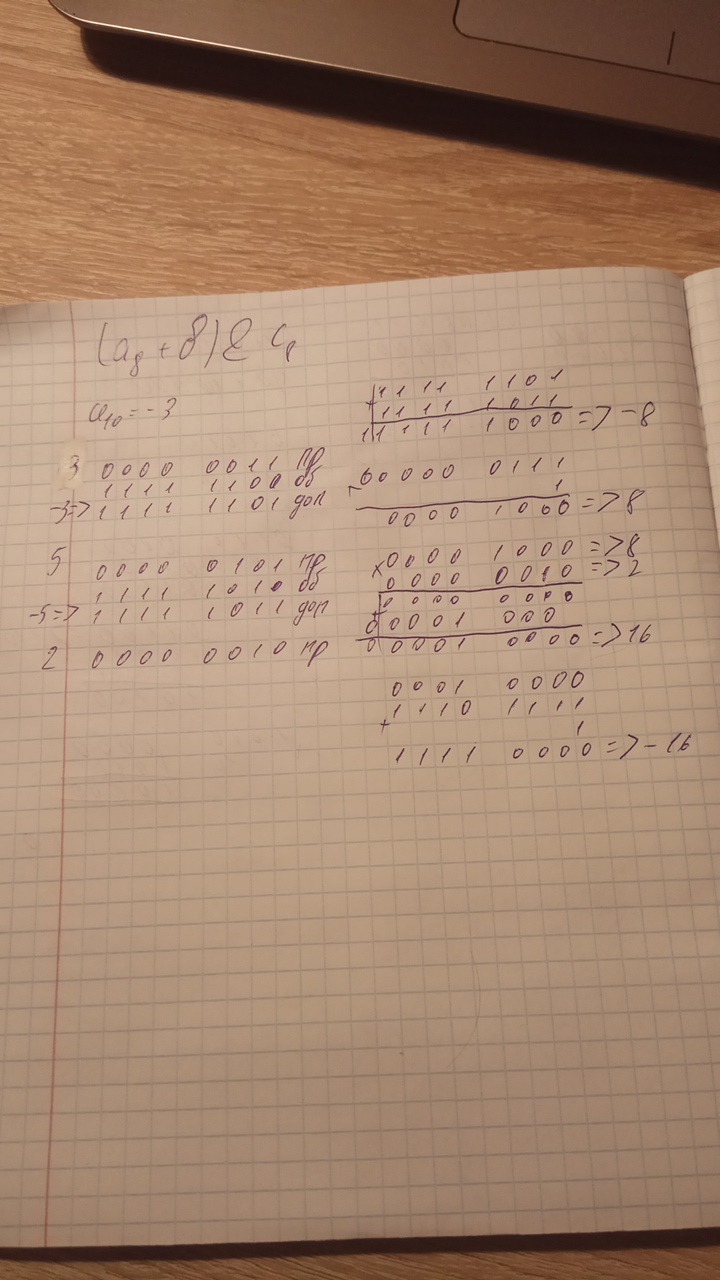 a₁₀ = -3
3 0000 0011 пр
1111 1100 об
-3=> 1111 1101 доп
5 0000 0101 пр
1111 1010 об
-5=> 1111 1011 доп
2 0000 0010 пр
1111 1101
+ 1111 1011
11111 1000 => -8
00000 0111
+ 1
0000 1000 => 8
x 0000 1000 => 8
0000 0010 => 2
0000 0000
+ 00001 000
00001 0000 => 16
0001 0000
1110 1111
+ 1
1111 0000 => -16